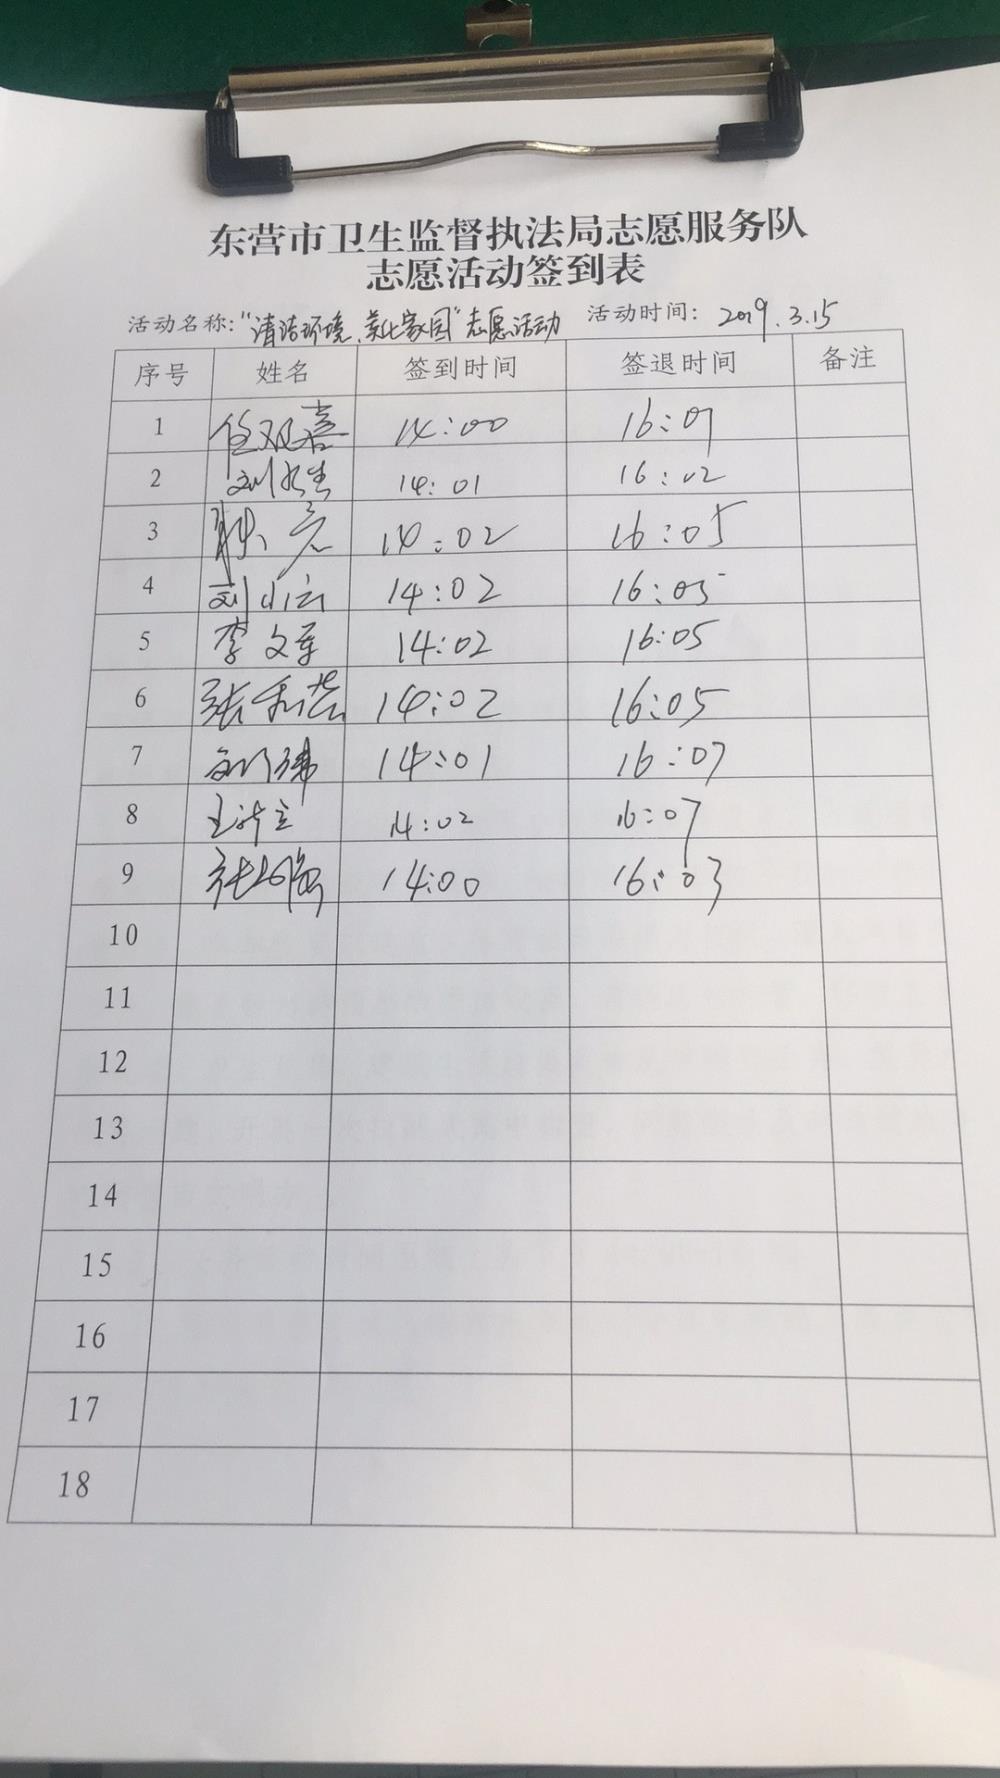 东营市卫生监督执法局志愿服务队
志愿活动签到表
活动名称:“清洁环境、美化家园”志愿活动 活动时间: 2019.3.15
序号 姓名 签到时间 签退时间 备注
1 任双喜 14:00 16:01
2 14:01 16:02
3 14:02 16:05
4 刘小云 14:02 16:05
5 李文军 14:02 16:05
6 14:02 16:05
7 刘玮 14:01 16:07
8 14:02 16:07
9 14:00 16:03
10
11
12
13
14
15
16
17
18